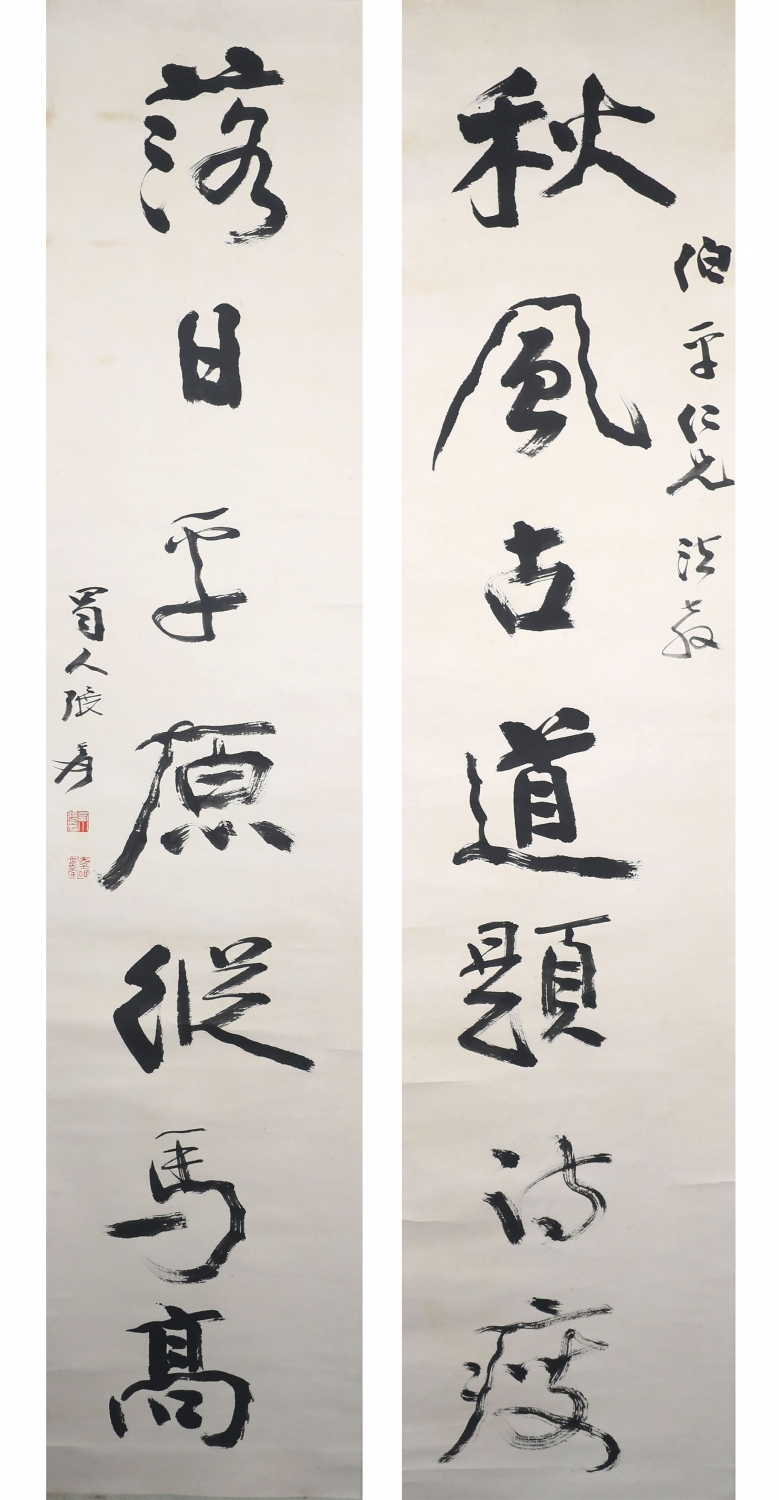 秋風古道題詩瘦
伯平仁兄法教
落日平原縱馬高
蜀人張爰